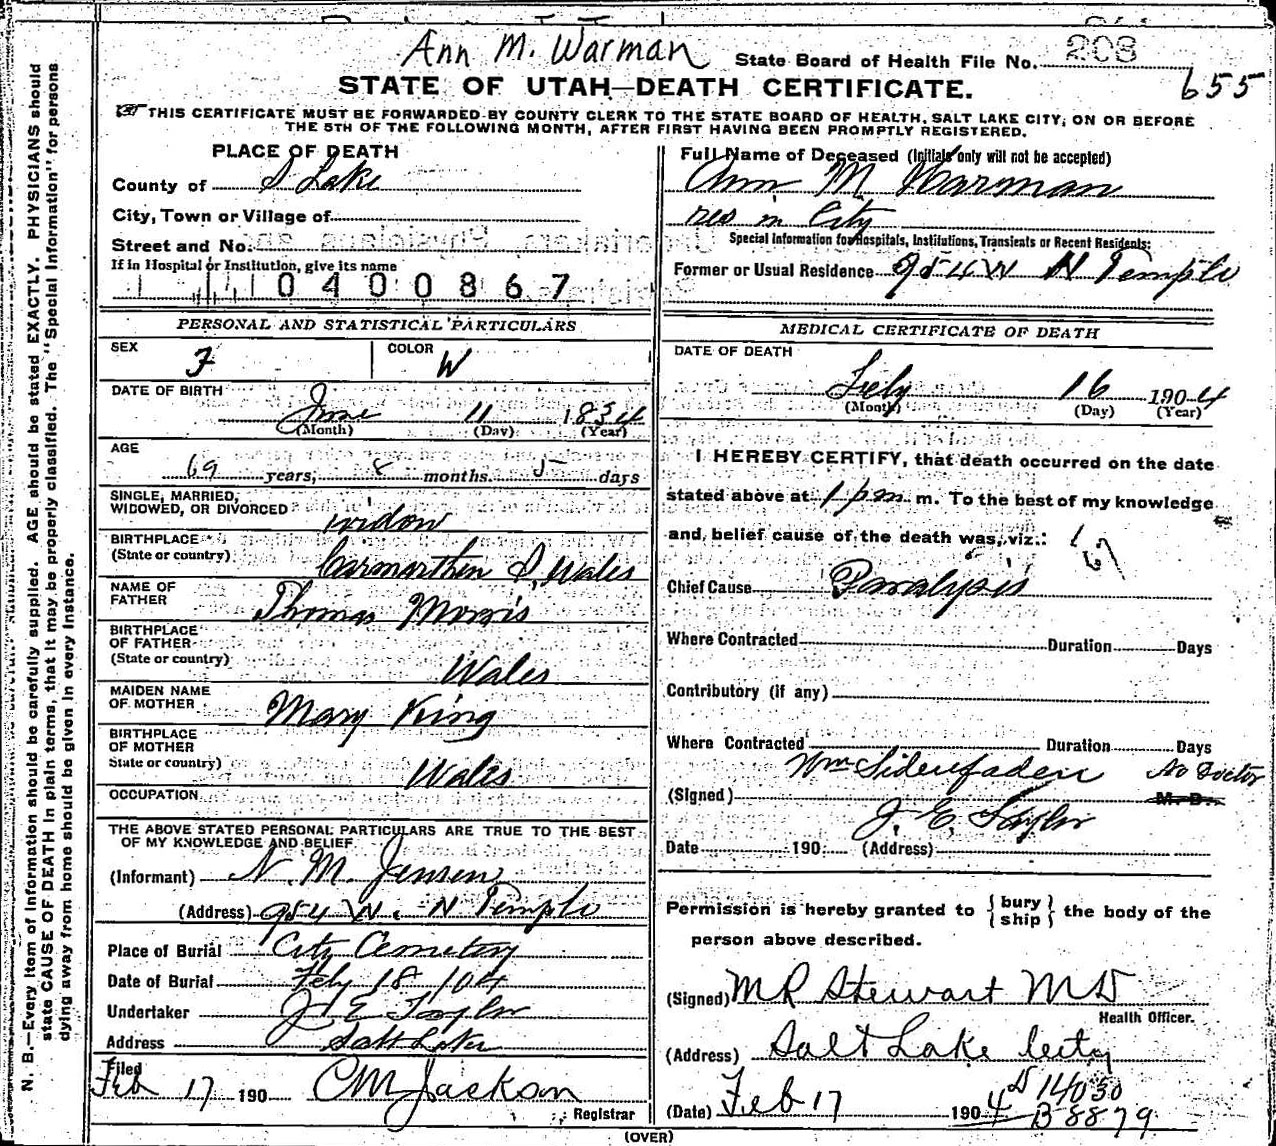 Ann M. Warman
State Board of Health File No. 208
655
STATE OF UTAH—DEATH CERTIFICATE.
THIS CERTIFICATE MUST BE FORWARDED BY COUNTY CLERK TO THE STATE BOARD OF HEALTH, SALT LAKE CITY, ON OR BEFORE
THE 5TH OF THE FOLLOWING MONTH, AFTER FIRST HAVING BEEN PROMPTLY REGISTERED.
N. B.—Every item of information should be carefully supplied. AGE should be stated EXACTLY. PHYSICIANS should
state CAUSE OF DEATH in plain terms, that it may be properly classified. The "Special Information" for persons
dying away from home should be given in every instance.
PLACE OF DEATH
County of S Lake
City, Town or Village of
Street and No.
If in Hospital or Institution, give its name
0400867
PERSONAL AND STATISTICAL PARTICULARS
SEX F
COLOR W
DATE OF BIRTH
June 11 1834
(Month) (Day) (Year)
AGE
69 years, 8 months. 5 days
SINGLE, MARRIED,
WIDOWED, OR DIVORCED widow
BIRTHPLACE
(State or country) Carmarthen S, Wales
NAME OF
FATHER Thomas Morris
BIRTHPLACE
OF FATHER
(State or country) Wales
MAIDEN NAME
OF MOTHER Mary King
BIRTHPLACE
OF MOTHER
State or country) Wales
OCCUPATION
THE ABOVE STATED PERSONAL PARTICULARS ARE TRUE TO THE BEST
OF MY KNOWLEDGE AND BELIEF
(Informant) N. M. Jensen
(Address) 954 W. N Temple
Place of Burial City Cemetery
Date of Burial Feby 18 104
Undertaker J E Taylor
Address Salt Lake
Filed
Feb 17 190 CM Jackson
Registrar
Full Name of Deceased (Initials only will not be accepted)
Ann M Warman
res in City
Special Information for Hospitals, Institutions, Transients or Recent Residents:
Former or Usual Residence 954 W N Temple
MEDICAL CERTIFICATE OF DEATH
DATE OF DEATH
Feby 16 1904
(Month) (Day) (Year)
I HEREBY CERTIFY, that death occurred on the date
stated above at 1 pm m. To the best of my knowledge
and belief cause of the death was, viz.:
Chief Cause Paralysis
Where Contracted Duration Days
Contributory (if any)
Where Contracted Duration Days
Wm Sidenfaden No Doctor
(Signed) M. D.
J. E. Taylor
Date 190 (Address)
Permission is hereby granted to { bury
ship } the body of the
person above described.
(Signed) M R Stewart M D
Health Officer.
(Address) Salt Lake City
(Date) Feb 17 1904
D 14050
B 8879
(OVER)